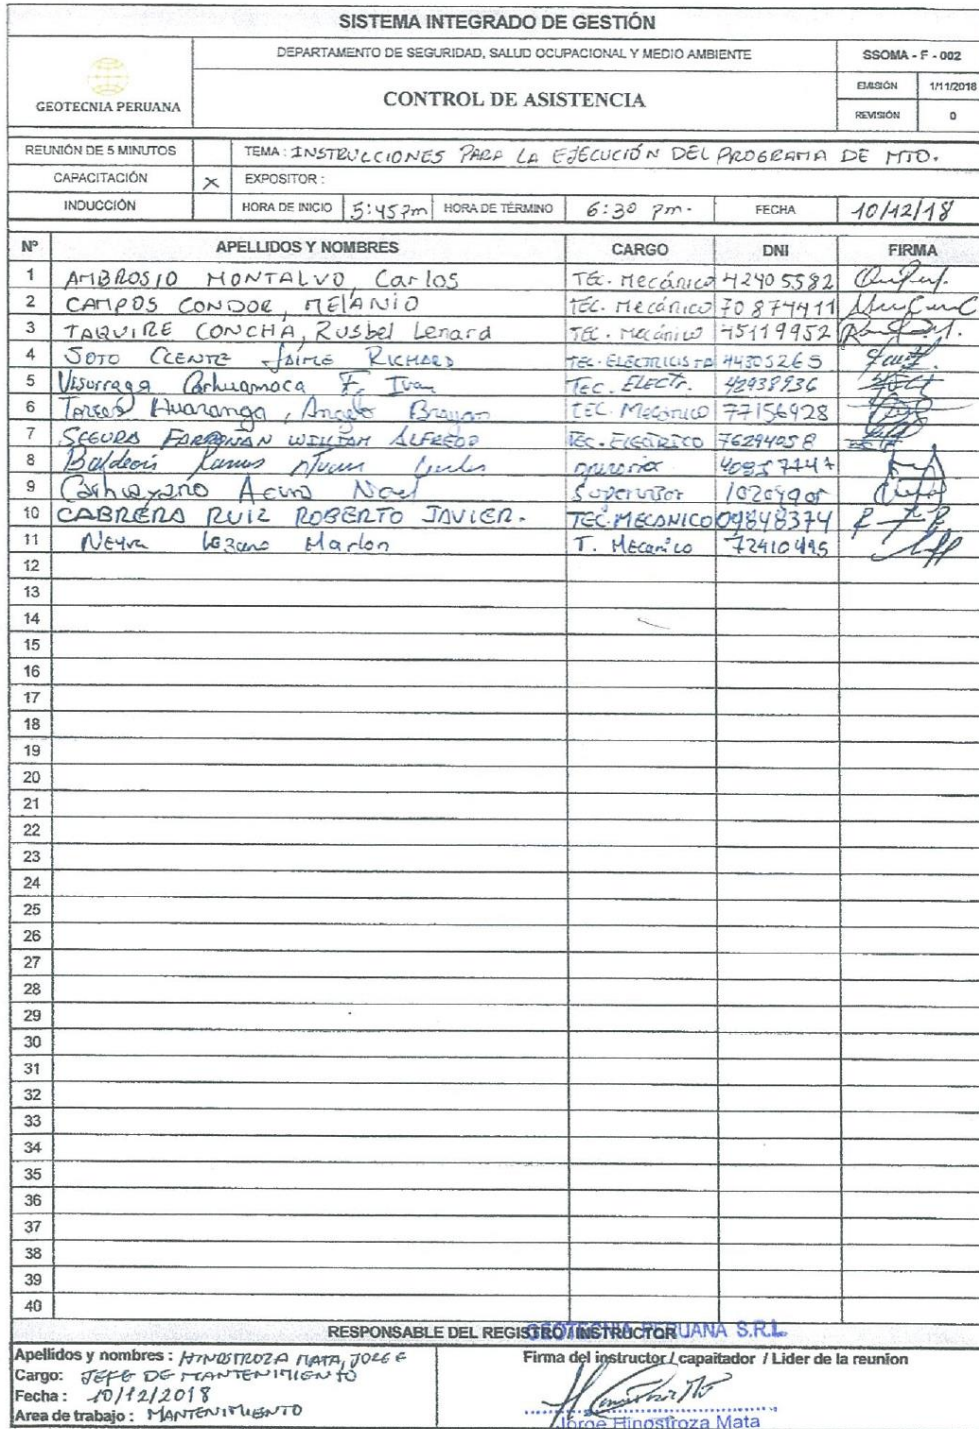 SISTEMA INTEGRADO DE GESTIÓN
GEOTECNIA PERUANA
DEPARTAMENTO DE SEGURIDAD, SALUD OCUPACIONAL Y MEDIO AMBIENTE
SSOMA - F - 002
CONTROL DE ASISTENCIA
EMISIÓN 1/11/2018
REVISIÓN 0
REUNIÓN DE 5 MINUTOS TEMA: INSTRUCCIONES PARA LA EJECUCIÓN DEL PROGRAMA DE MTO.
CAPACITACIÓN X EXPOSITOR:
INDUCCIÓN HORA DE INICIO 5:45 pm HORA DE TÉRMINO 6:30 pm. FECHA 10/12/18
Nº APELLIDOS Y NOMBRES CARGO DNI FIRMA
1 AMBROSIO MONTALVO, Carlos TÉC. Mecánico 42405582
2 CAMPOS CONDOR, MELANIO TÉC. Mecánico 70874411
3 TAQUIRE CONCHA, Rusbel Lenard TÉC. Mecánico 45119952
4 SOTO CCENTE JAIME RICHARD TEC. ELECTRICISTA 44305265
5 Visurraga Carhuamaca F. Ivan TEC. ELECTR. 42938936
6 Huaranga, Angelo Brayan TEC. Mecánico 77156928
7 SEGURA WILLIAM ALFREDO TEC. ELECTRICO 76294058
8 Ramos
9 Noel Supervisor
10 CABRERA RUIZ ROBERTO JAVIER. TEC. MECANICO 09848374
11 Neyra Lozano Marlon T. Mecanico 72410495
12
13
14
15
16
17
18
19
20
21
22
23
24
25
26
27
28
29
30
31
32
33
34
35
36
37
38
39
40
RESPONSABLE DEL REGISTRO / INSTRUCTOR
GEOTECNIA PERUANA S.R.L.
Apellidos y nombres: HINOSTROZA MATA, JORGE
Cargo: JEFE DE MANTENIMIENTO
Fecha: 10/12/2018
Area de trabajo: MANTENIMIENTO
Firma del instructor / capaitador / Lider de la reunion
Jorge Hinostroza Mata